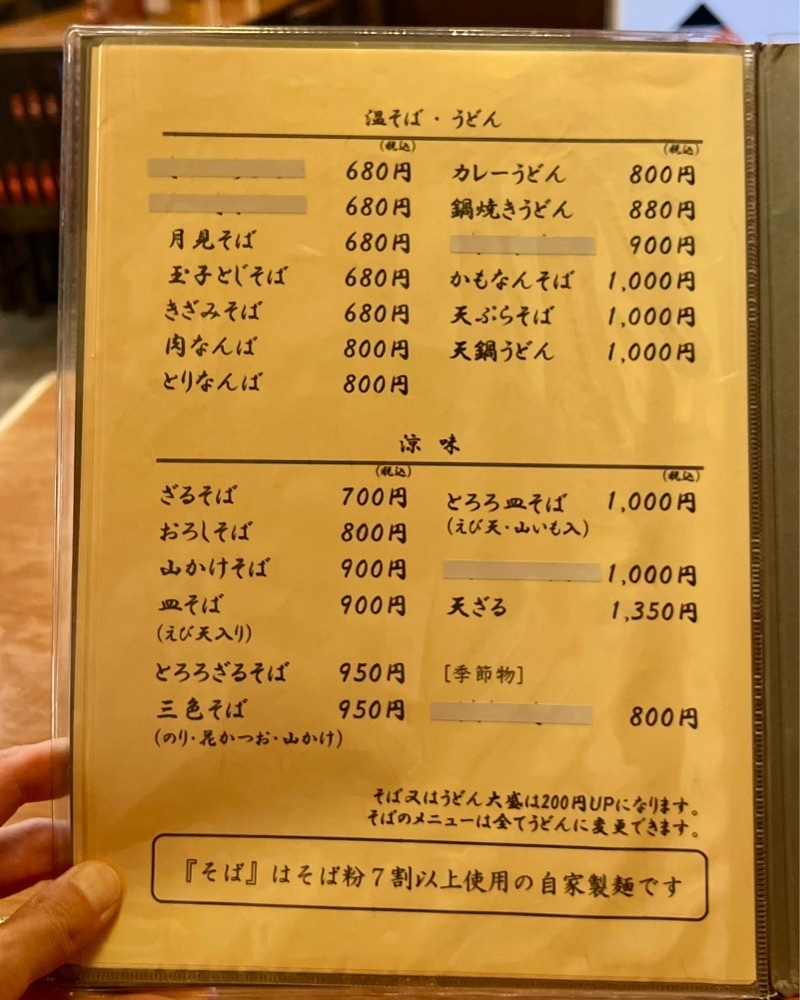 温そば・うどん
(税込)
680円
680円
月見そば 680円
玉子とじそば 680円
きざみそば 680円
肉なんば 800円
とりなんば 800円
(税込)
カレーうどん 800円
鍋焼きうどん 880円
900円
かもなんそば 1,000円
天ぷらそば 1,000円
天鍋うどん 1,000円
涼味
(税込)
ざるそば 700円
おろしそば 800円
山かけそば 900円
皿そば 900円
(えび天入り)
とろろざるそば 950円
三色そば 950円
(のり・花かつお・山かけ)
(税込)
とろろ皿そば 1,000円
(えび天・山いも入)
1,000円
天ざる 1,350円
[季節物]
800円
そば又はうどん大盛は200円UPになります。
そばのメニューは全てうどんに変更できます。
『そば』はそば粉7割以上使用の自家製麺です